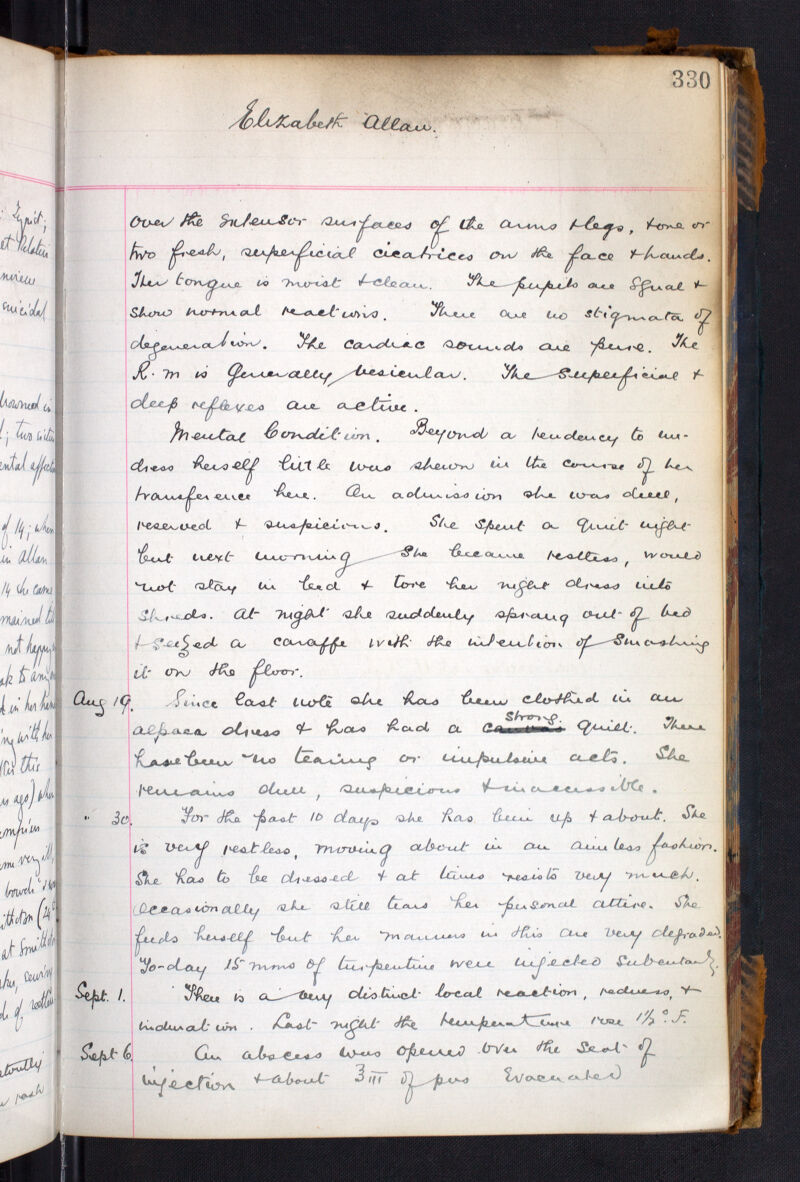 330
Elizabeth Allan.
over the extensor surfaces of the arms & legs, & one or
two fresh, superficial cicatrices on the face & hands.
Her tongue is moist & clean. The pupils are equal &
show normal reactions. There are no stigmata of
degeneration. The cardiac sounds are pure. The
R.m is generally vesicular. The superficial &
deep reflexes are active.
Mental Condition. Beyond a tendency to un-
dress herself little was shewn in the course of her
transference here. On admission she was dull,
reserved & suspicious. She spent a quiet night
but next morning she became restless, would
not stay in bed & tore her night dress into
shreds. At night she suddenly sprang out of bed
& seized a caraffe with the intention of smashing
it on the floor.
Aug 19. Since last note she has been clothed in an
alpaca dress & has had a canvas strong quilt. There
have been no tearing or impulsive acts. She
remains dull, suspicious & inaccessible.
" 30. For the past 10 days she has been up & about. She
is very restless, moving about in an aimless fashion.
She has to be dressed & at times resists very much.
Occasionally she still tears her personal attire. She
feeds herself but her manners in this are very degraded.
To-day 15 mms of turpentine were injected subcutanly.
Sept. 1. There is a very distinct local reaction, redness, &
induration. Last night the temperature rose 1½°. F.
Sept 6 An abscess was opened over the seat of
injection & about ʒiii of pus evacuated
et
suicidal
drowned in
of 14; when
in Allan
14 she came
not happy
with her
this
ago)
very ill,
bowels
at
of
rash